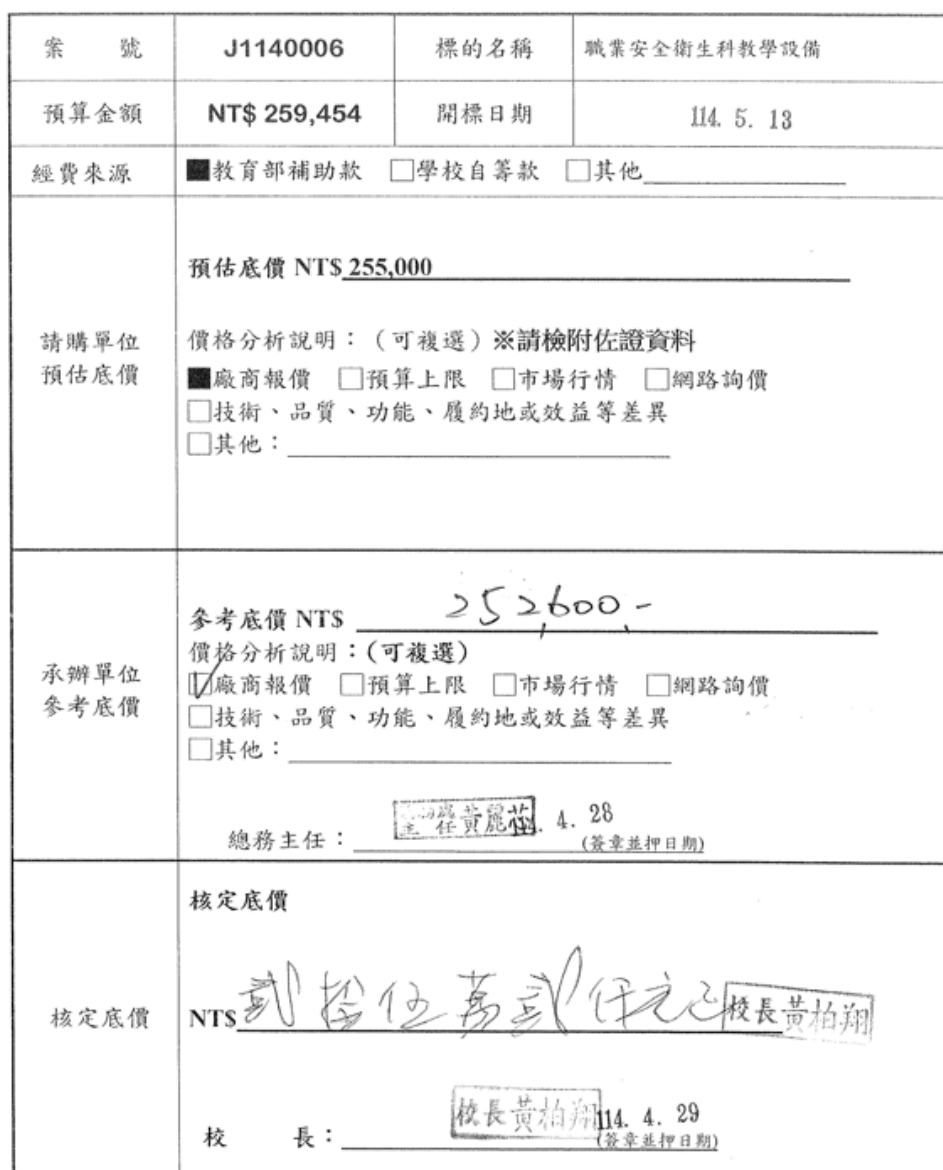 案 號 J1140006 標的名稱 職業安全衛生科教學設備
預算金額 NT$ 259,454 開標日期 114. 5. 13
經費來源 ■教育部補助款 □學校自籌款 □其他
預估底價 NT$ 255,000
請購單位
預估底價
價格分析說明：（可複選）※請檢附佐證資料
■廠商報價 □預算上限 □市場行情 □網路詢價
□技術、品質、功能、履約地或效益等差異
□其他：
參考底價 NT$ 252,600.-
承辦單位
參考底價
價格分析說明：(可複選)
☑廠商報價 □預算上限 □市場行情 □網路詢價
□技術、品質、功能、履約地或效益等差異
□其他：
主任黃麗 4. 28
總務主任： (簽章並押日期)
核定底價
核定底價 NT$ 貳拾伍萬貳仟元正 校長黃柏翔
校長黃柏翔 114. 4. 29
校 長： (簽章並押日期)